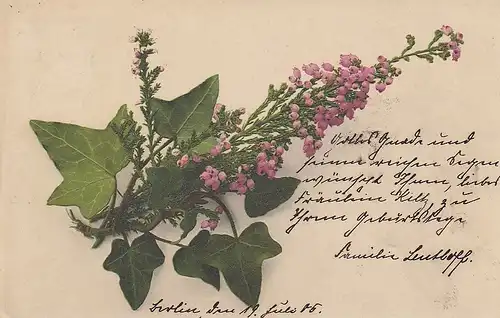 Gottes Gnade und
seinen reichen Segen
wünscht Ihnen, liebes
Fräulein Kitz, zu
Ihrem Geburtstage
Familie
Berlin, den 19. Juli 05.